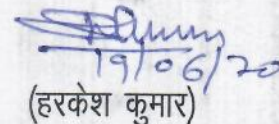 19/06/20
(हरकेश कुमार)